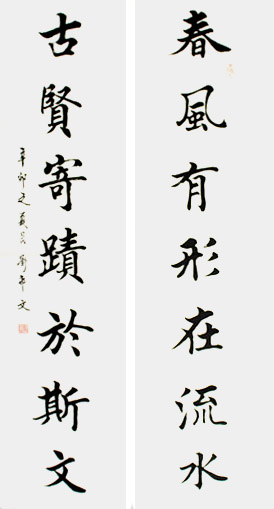 春風有形在流水
古賢寄蹟於斯文
辛卯之
文